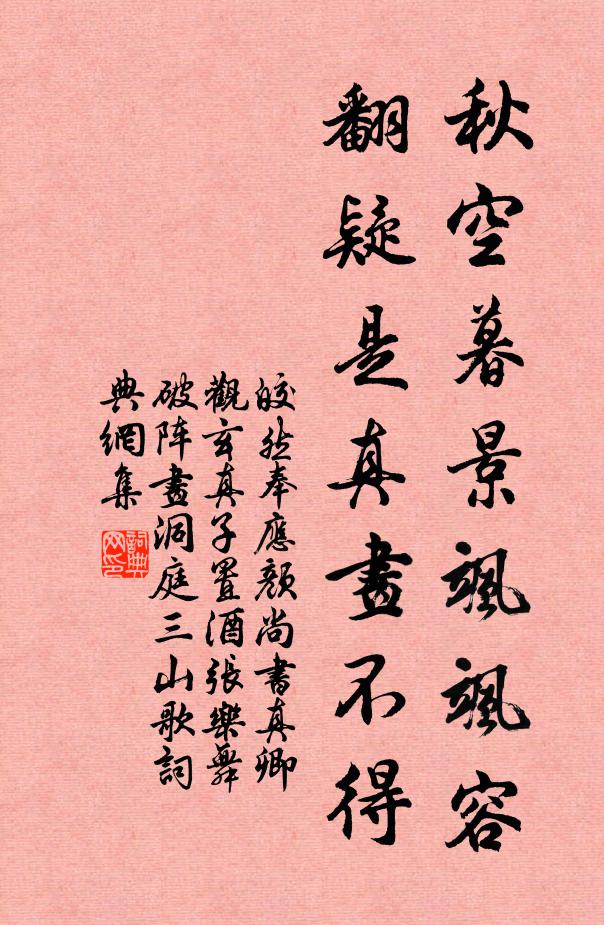 秋空暮景颯颯容
翻疑是真畫不得
皎然奉應顏尚書真卿
觀玄真子置酒張樂舞
破阵畫洞庭三山歌詞
典網集
詞典網印